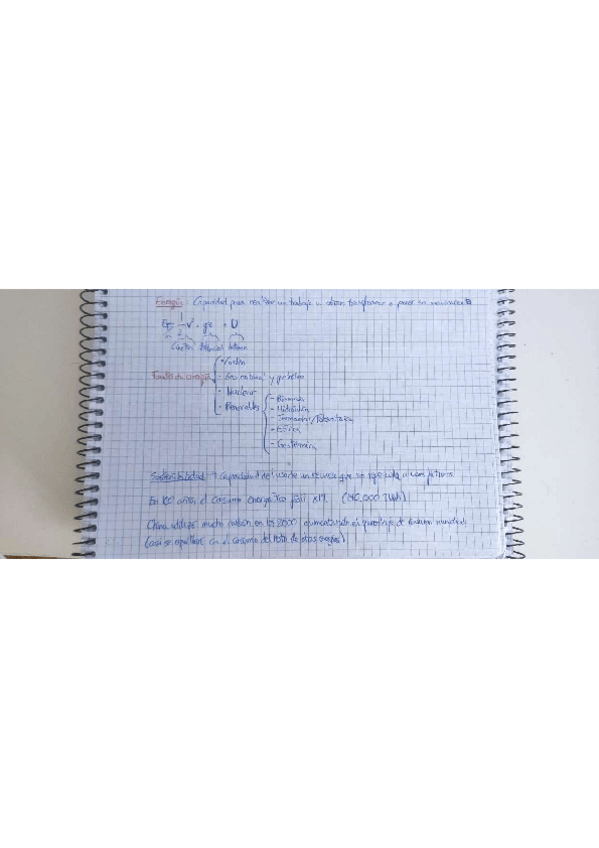 Energía: Capacidad para realizar un trabajo u obrar, transformar o poner en movimiento
E = 1/2 v² + gz + U
m
Cinética Potencial Interna
Fuentes de energía
- Carbón
- Gas natural y petróleo
- Nuclear
- Renovables
- Biomasa
- Hidráulica
- /Fotovoltaica
- Eólica
- Geotérmica
Sostenibilidad → Capacidad del uso de un recurso que no
En 100 años el consumo energético (140.000 TWh)
China utilizó mucho carbón en los 2000 aumentando el porcentaje de mundial
(casi se equipara con el consumo del resto de otras energías)